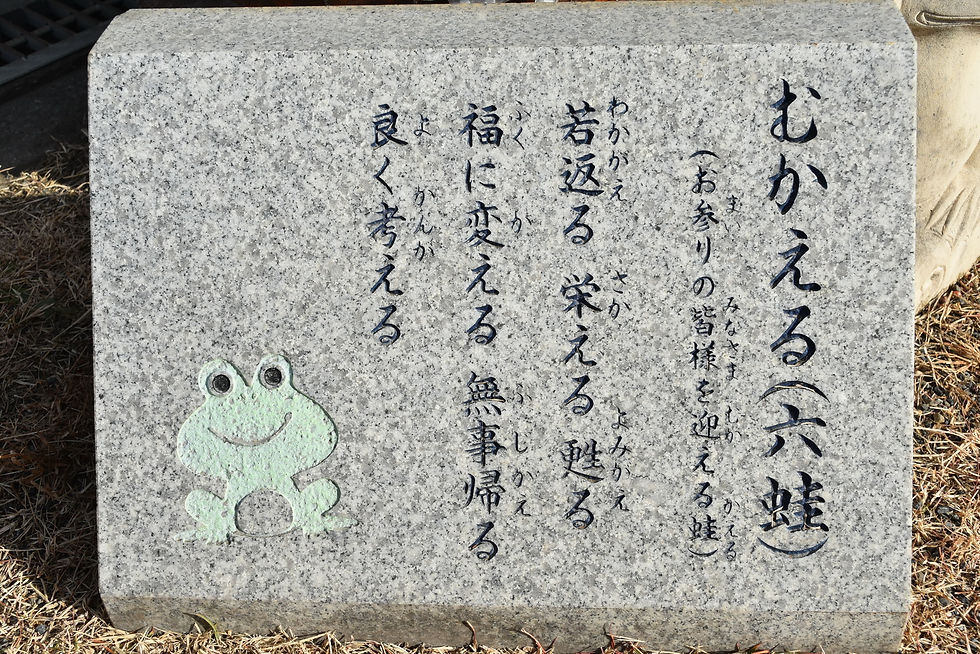 むかえる(六蛙)
まい みなさま むか かえる
(お参りの皆様を迎える蛙)
わかがえ さか よみがえ
若返る 栄える 甦る
ふく か ぶじかえ
福に変える 無事帰る
よ かんが
良く考える